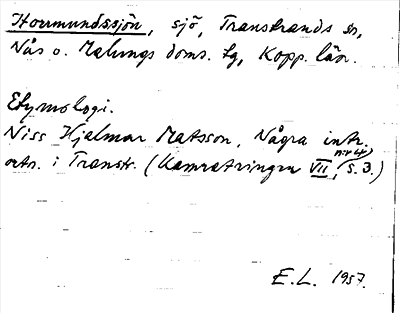 Horrmundssjön, sjö, Transtrands sn,
Nås o. Malungs doms. tg, Kopp. län.
Etymologi.
Niss Hjalmar Matsson, Några intr.
ortn. i Transtr. (Kamratringen VII, nr 4, s. 3.)
E.L. 1957.